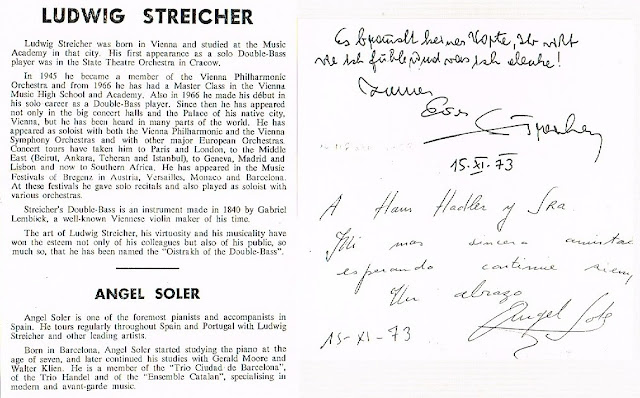 LUDWIG STREICHER
Ludwig Streicher was born in Vienna and studied at the Music
Academy in that city. His first appearance as a solo Double-Bass
player was in the State Theatre Orchestra in Cracow.
In 1945 he became a member of the Vienna Philharmonic
Orchestra and from 1966 has had a Master Class in the Vienna
Music High School and Academy. Also in 1966 he made his début in
his solo career as a Double-Bass player. Since then he has appeared
not only in the big concert halls and the Palace of his native city,
Vienna, but he has been heard in many parts of the world. He has
appeared as soloist with both the Vienna Philharmonic and the Vienna
Symphony Orchestras and with other major European Orchestras.
Concert tours have taken him to Paris and London, to the Middle
East (Beirut, Ankara, Teheran and Istanbul), to Geneva, Madrid and
Lisbon and now to Southern Africa. He has appeared in the Music
Festivals of Bregenz in Austria, Versailles, Monaco and Barcelona.
At these festivals he gave solo recitals and also played as soloist with
various orchestras.
Streicher's Double-Bass is an instrument made in 1840 by Gabriel
Lemböck, a well-known Viennese violin maker of his time.
The art of Ludwig Streicher, his virtuosity and his musicality have
won the esteem not only of his colleagues but also of his public, so
much so, that he has been named the "Oistrakh of the Double-Bass".
ANGEL SOLER
Angel Soler is one of the foremost pianists and accompanists in
Spain. He tours regularly throughout Spain and Portugal with Ludwig
Streicher and other leading artists.
Born in Barcelona, Angel Soler started studying the piano at the
age of seven, and later continued his studies with Gerald Moore and
Walter Klien. He is a member of the "Trio Ciudad de Barcelona",
of the Trio Handel and of the "Ensemble Catalan", specialising in
modern and avant-garde music.
Es braucht keiner Worte,
wie ich fühle und was ich denke!
Immer
Euer
15.XI.73
A Hans Hadler y Sra
Mi mas sincera amistad
esperando continue
Un abrazo
Angel Soler
15-XI-73